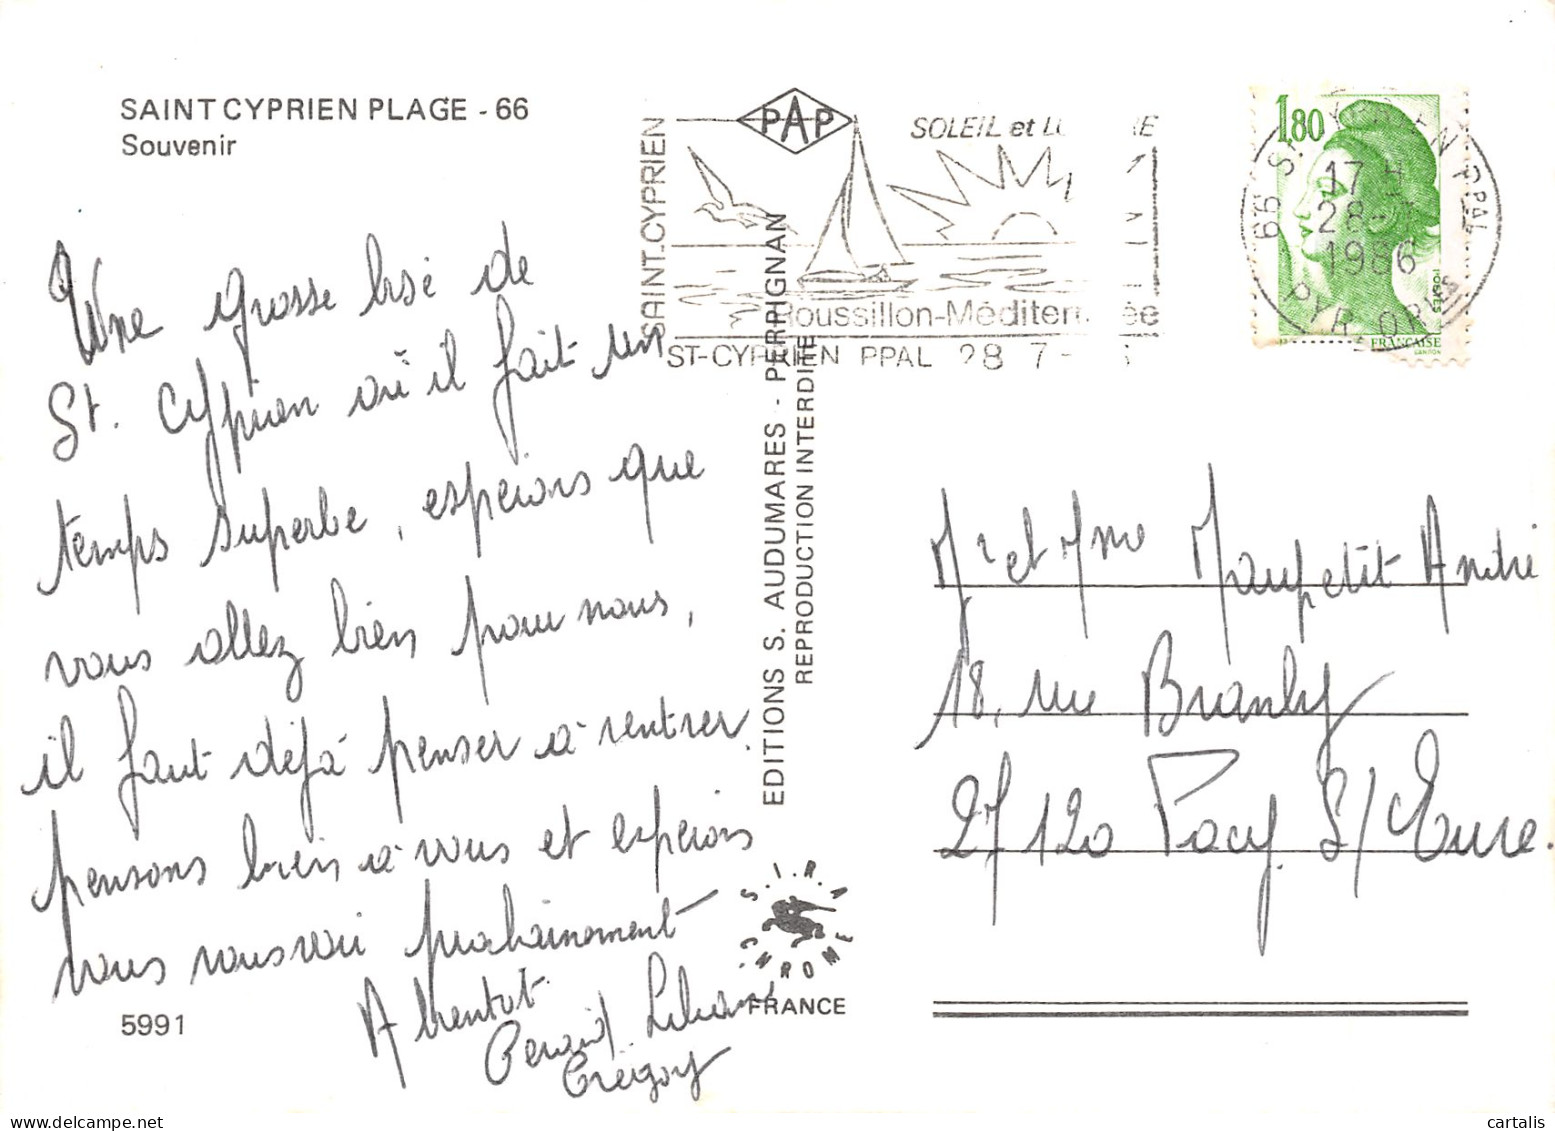 SAINT CYPRIEN PLAGE - 66
Souvenir
Une grosse bisé de
St. Cyprien où il fait un
temps superbe, esperons que
vous allez bien pour nous,
il faut déjà penser à rentrer
pensons bien à vous et esperons
vous revoir prochainement
A bientot.
Gerard Liliane
Grégory
5991
EDITIONS S. AUDUMARES - PERPIGNAN
REPRODUCTION INTERDITE
S.I.R.A
CHROME
FRANCE
PAP
SAINT-CYPRIEN
SOLEIL et
Roussillon-Méditerranée
ST-CYPRIEN PPAL 28 7 -
1,80
POSTES
FRANCAISE
GANDON
66 ST CYPRIEN PPAL
17 H
28 -
1986
PYR. ORles
Mr et Mme Maupetit André
18, rue Branly
27120 Pacy S/ Eure.
cartalis